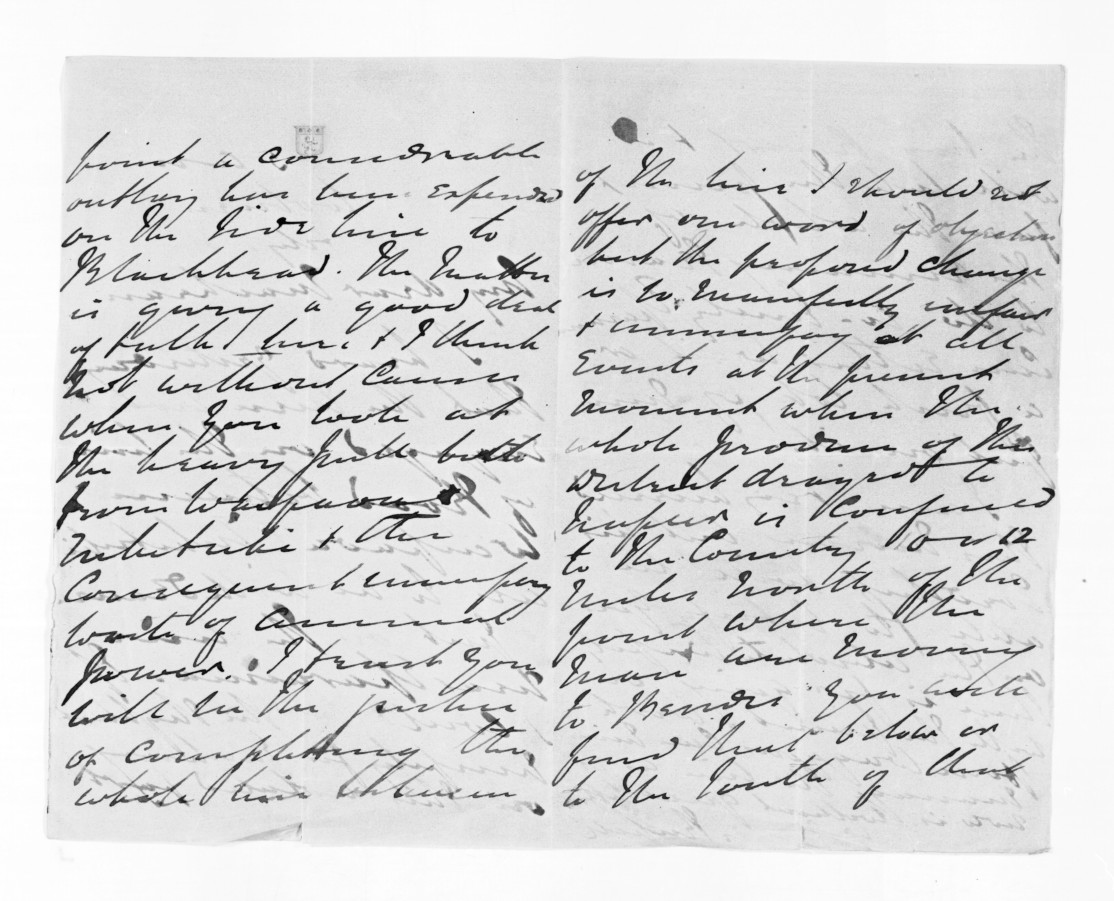 point a considerable
outlay has been expended
on the side line to
Blackhead. The matter
is giving a good deal
of talk here & I think
not without cause
when you look at
the heavy pull both
from Waipawa &
the
consequent unnecessary
waste of animal
power. I trust you
will see the justice
of completing the
whole line between
of the line I should not
offer one word of objection
but the proposed change
is so manifestly unfair
& unnecessary at all
Events at the present
moment when the
whole produce of this
District drayed to
Napier is confined
to the Country 10 or 12
miles North of the
point where the
men are moving
to Besides you will
find that below or
to the South of that